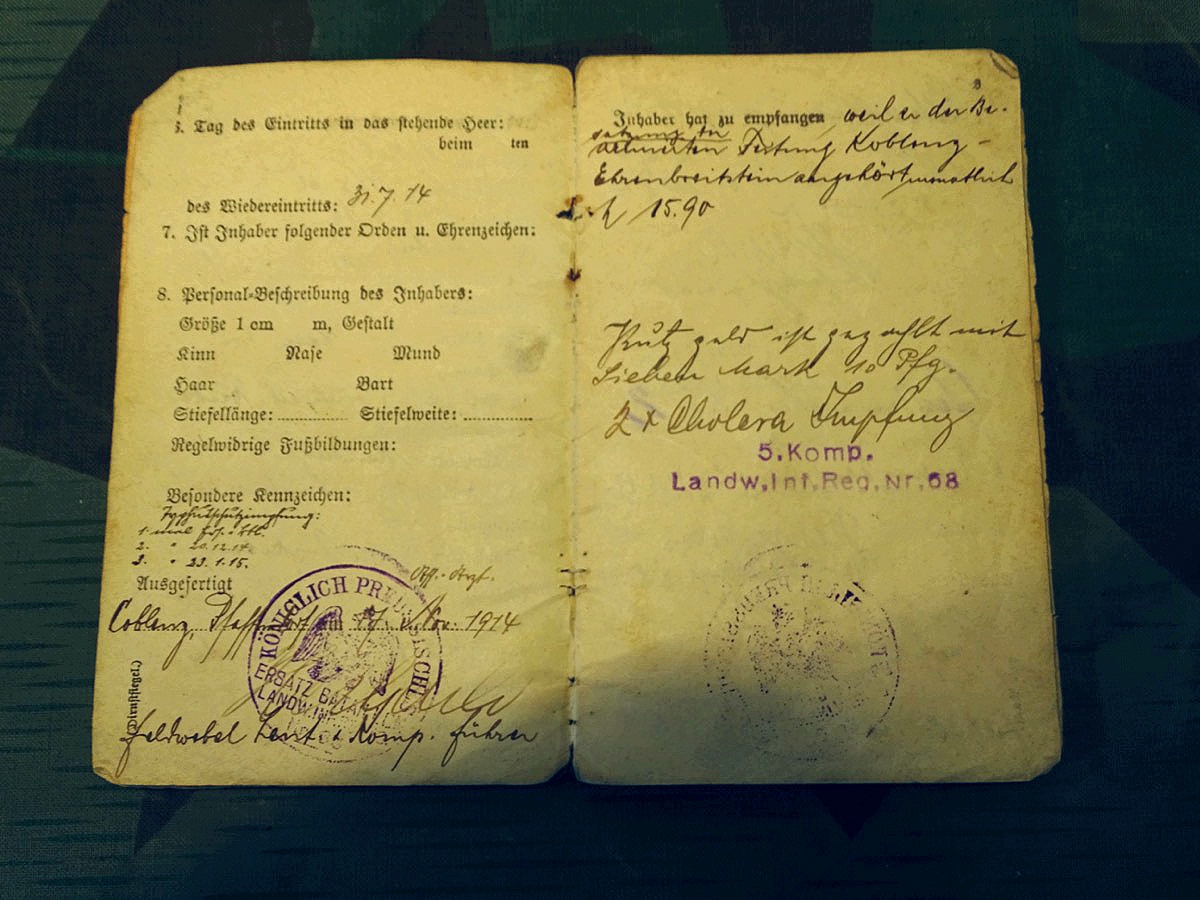 Tag des Eintritts in das stehende Heer:
beim ten
des Wiedereintritts: 31.7.14
7. Ist Inhaber folgender Orden u. Ehrenzeichen:
8. Personal-Beschreibung des Inhabers:
Größe 1 cm m, Gestalt
Kinn Nase Mund
Haar Bart
Stiefellänge: Stiefelweite:
Regelwidrige Fußbildungen:
Besondere Kennzeichen:
Typhusschutzimpfung:
1 mal
2. " 20.12.14
3. " 23.1.15.
Ausgefertigt
Coblenz, Pfaffendorf am Nov. 1914
KÖNIGLICH PREUSSISCHE
ERSATZ BATA
LANDW. INF
(Dienstsiegel.)
Feldwebel Leut. u. Komp. führer
Inhaber hat zu empfangen, weil er der Be-
satzung der
armierten Festung Koblenz-
Ehrenbreitstein angehört, monatlich
M 15.90
Putzgeld ist gezahlt mit
Sieben Mark 10 Pfg.
2 x Cholera Impfung
5.Komp.
Landw.Inf.Reg.Nr.68